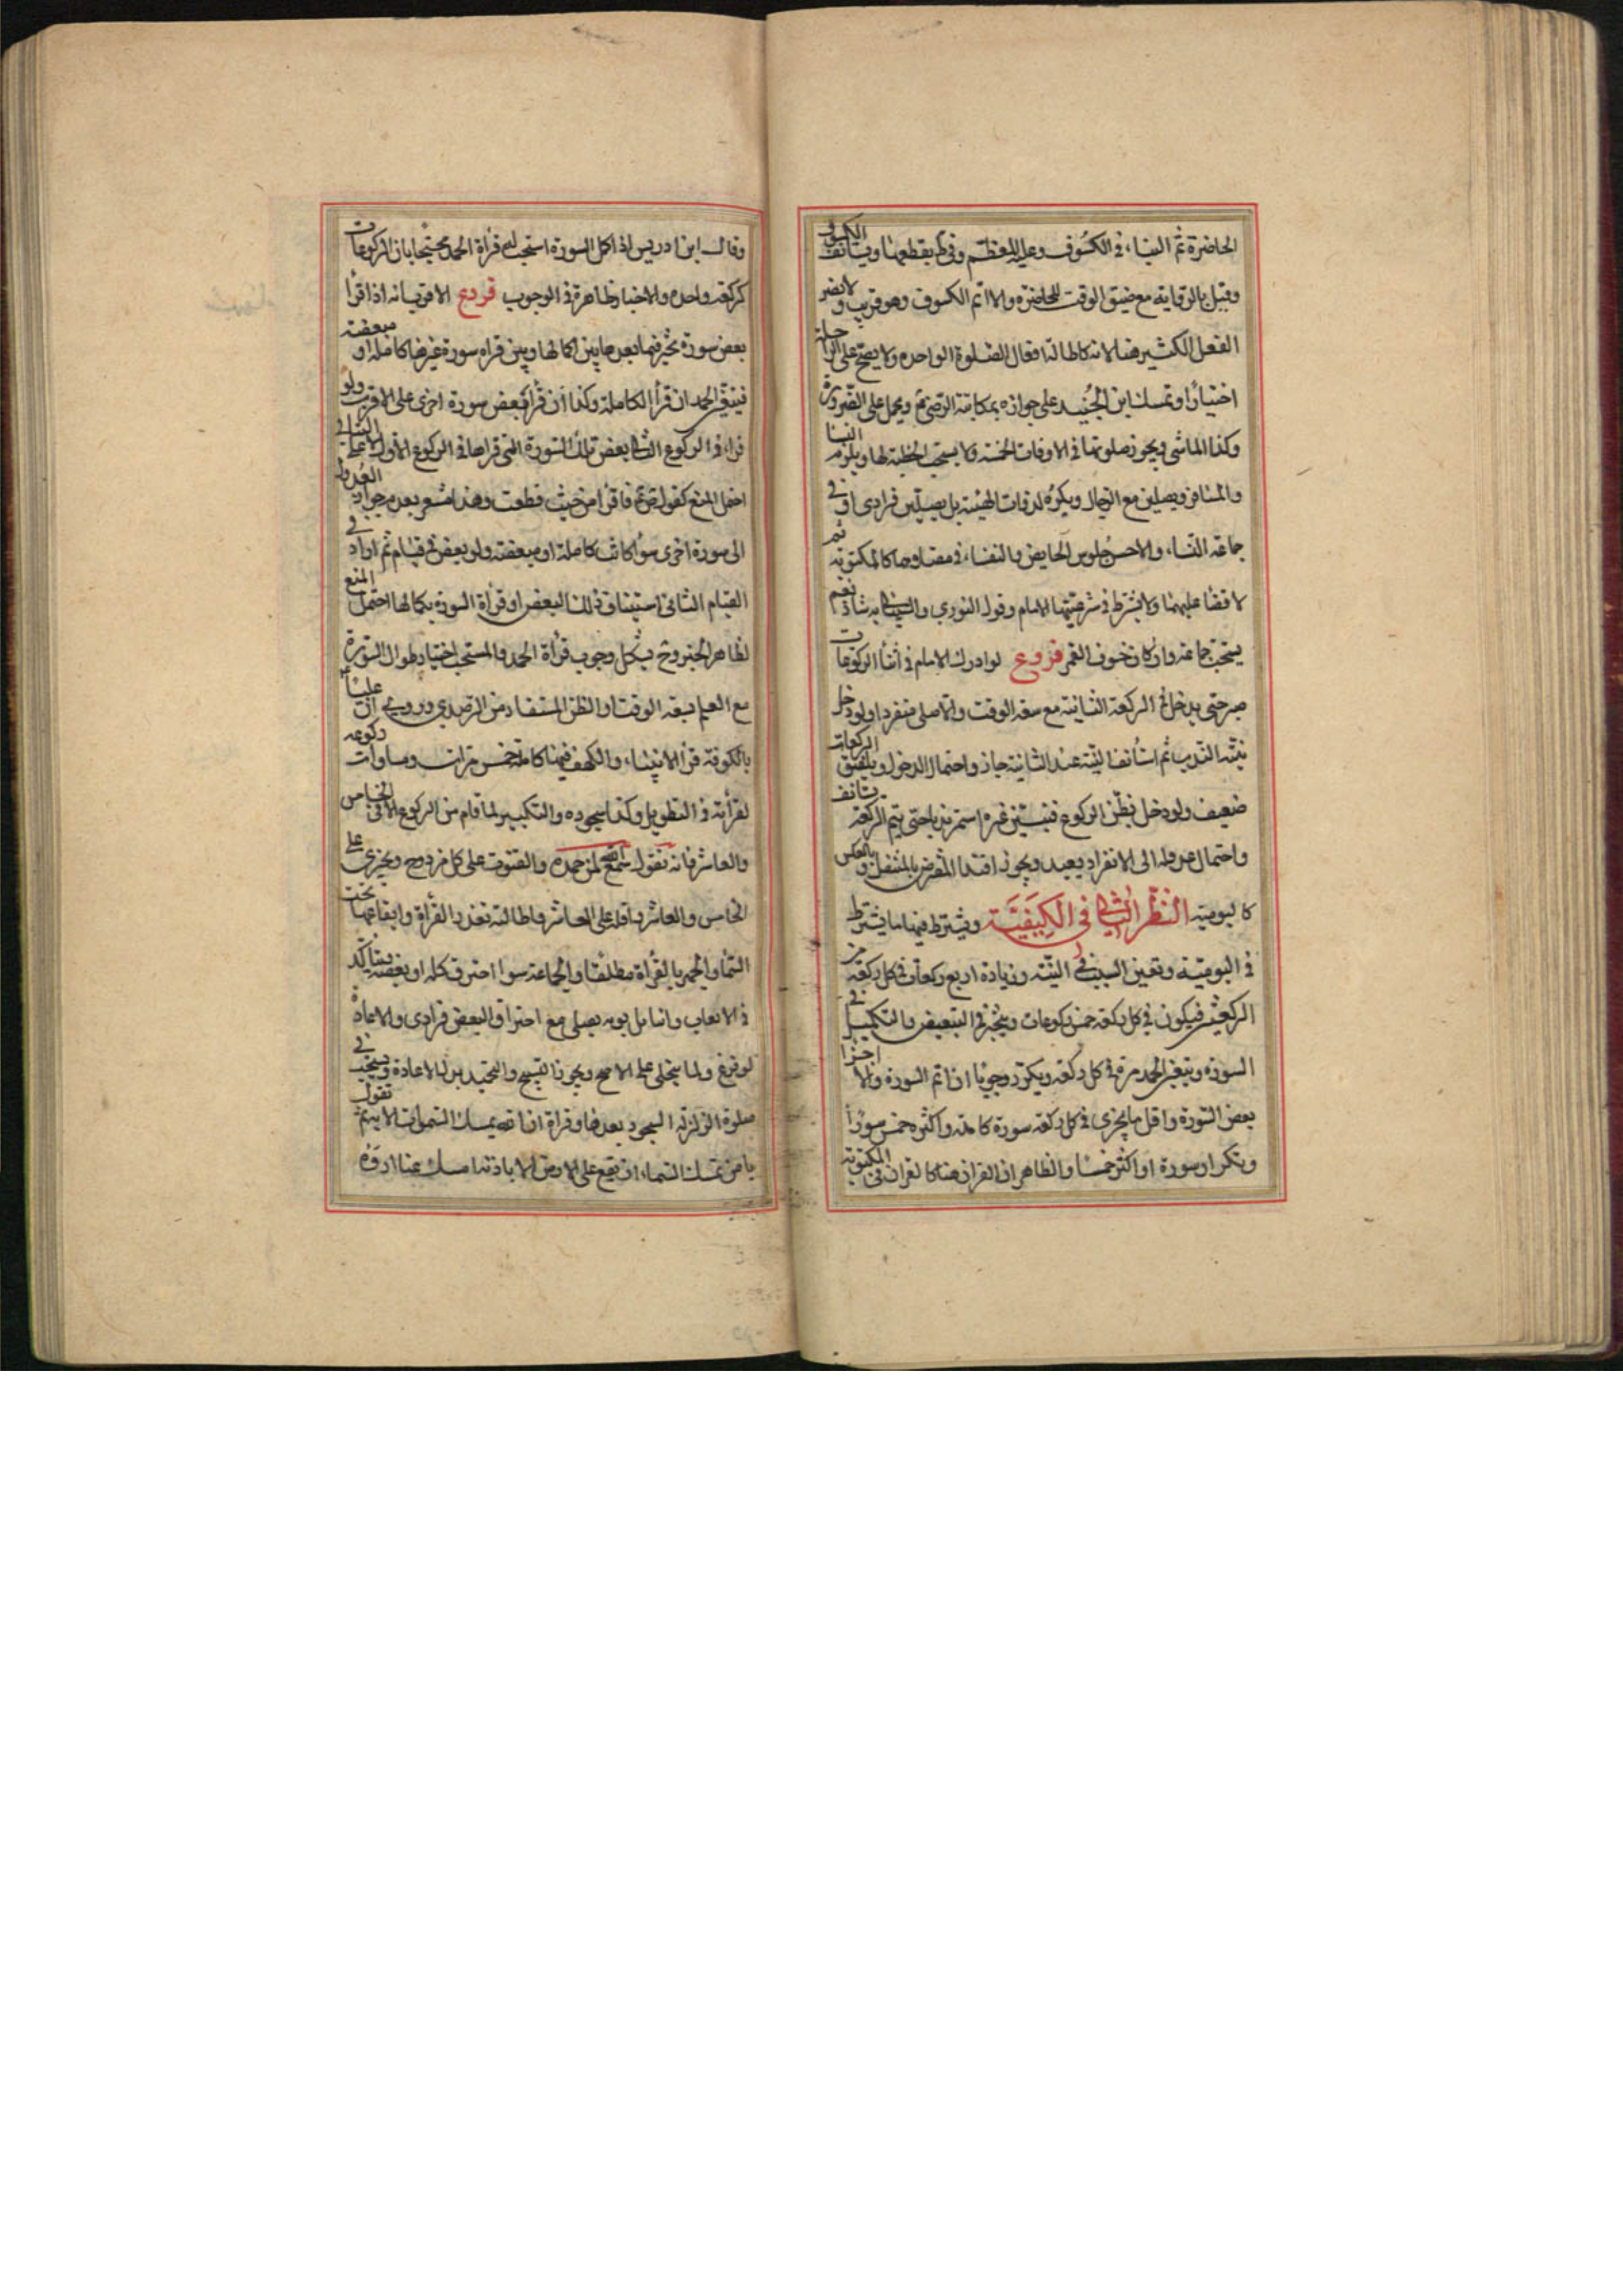 الحاضرة ثم البناء في الكسوف وعليه المعظم وفي ط يقطعها ويستأنف الكسوف
وقيل بالرواية مع ضيق الوقت للحاضرة والا اتم الكسوف وهو قريب ولا يضر
الفعل الكثير هنا لانه كاطالة افعال الصلوة الواحدة ولا يصح على الراحلة
اختيارا وتمسك ابن الجنيد على جوازه بمكاتبة الرضي ع ويحمل على الضرورة
وكذا الماشي ويجوز صلوتها في الاوقات الخمسة ولا يستحب الخطبة لها ويلزم النساء
والمسافر ويصلين مع الرجال ويكره لذوات الهيئة بل يصلين فرادى او في
جماعة النساء والاحسن جلوس الحايض والنفساء في مصلاهما كالمكتوبة ثم
لا قضاء عليهما ولا يشترط في شرعيتها الامام وقول الثوري والشيباني به شاذ نعم
يستحب جماعة وان كان خسوف القمر فروع لو ادرك الامام في اثناء الركوعات
صبر حتى يدخل في الركعة الثانية مع سعة الوقت والا صلى منفردا ولو دخل
بنية الندب ثم استأنف النية عند الثانية جاز واحتمال الدخول ويلفق الركعات
ضعيف ولو دخل بظن الركوع فتبين غيره استمر ندبا حتى يتم الركعة يستأنف
واحتمال عدوله الى الانفراد بعيد ويجوز اقتداء المفترض بالمتنفل وبالعكس
كاليومية النظر الثاني في الكيفية ويشترط فيها ما يشترط
في اليومية وتعين السبب في النية وزيادة اربع ركعات في كل ركعة من
الركعتين فيكون في كل ركعة خمس ركوعات ويتخير في التبعيض والتكميل في
السورة ويتعين الحمد مرة في كل ركعة ويكرر وجوبا ان اتم السورة والا اجزأ
بعض السورة واقل ما يجزي في كل ركعة سورة كاملة واكثره خمس سورا
وبتكرار سورة او اكثر خمسا والظاهر ان القران هنا كالقران في المكتوبة
وقال ابن ادريس اذا اكمل السورة استحب له قراءة الحمد محتجا بان الركوعات
كركعة واحدة والاخبار ظاهرة في الوجوب فروع الاقرب انه اذا قرأ
بعض سورة تخير فيما بعدها بين اكمالها وبين قراءة سورة غيرها كاملة او مبعضة
فيتعين الحمد ان قرأ الكاملة وكذا ان قرأ بعض سورة اخرى على الاقرب ولو
قراء في الركوع الثاني بعض تلك السورة التي قراها في الركوع الاول
احتمل المنع كقوله ع فاقرأ من حيث قطعت وهذا مشعر بعدم جواز العدول
الى سورة اخرى سواء كانت كاملة او مبعضة ولو بعض في قيام ثم اراد في
القيام الثاني استيناف ذلك البعض او قراءة السورة بكمالها احتمل المنع
لظاهر الخبر وح يشكل وجوب قراءة الحمد والمستحب اختيار طوال السورة
مع العلم بسعة الوقت او الظن المستفاد من الرصدي وروي ان عليا
بالكوفة قرأ الانبياء والكهف خمس مرات ومساوات ركوعه
لقرأته في التطويل وكذا سجوده والتكبير لما قام من الركوع الا في الخامس
والعاشر فانه تقول سمع الله لمن حمده والقنوت على كل مزدوج ويجزي على
الخامس والعاشر واقله على العاشر واطالته بقدر القرأة وايقاعها تحت
السماء والجهر بالقرأة مطلقا والجماعة سوا احترق كله او بعضه ويتاكد
في الايعاب وابنا بابويه يصلي مع احتراق البعض فرادى والاعادة
لو فرغ ولما ينجلي على الاصح ويجوز التسبيح والتحميد بدل الاعادة ويستحب في
صلوة الزلزلة السجود بعدها وقراة ان الله يمسك السموات الاية ثم تقول
يا من يمسك السماء ان تقع على الارض الا باذنه امسك عنا